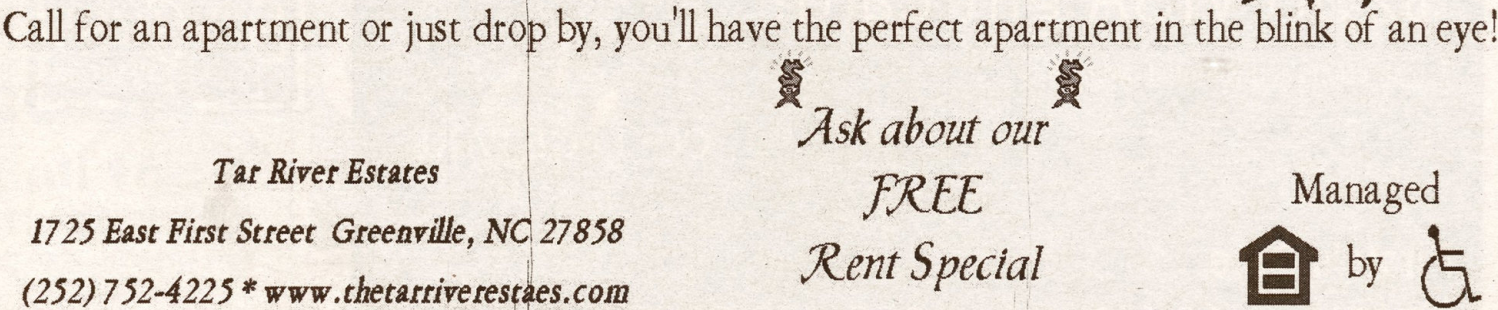 Call for an apartment or just drop by, you'll have the perfect apartment in the blink of an eye!
Tar River Estates
1725 East First Street Greenville, NC 27858
(252) 752-4225 * www.thetarriverestaes.com
Ask about our
FREE
Rent Special
Managed
by